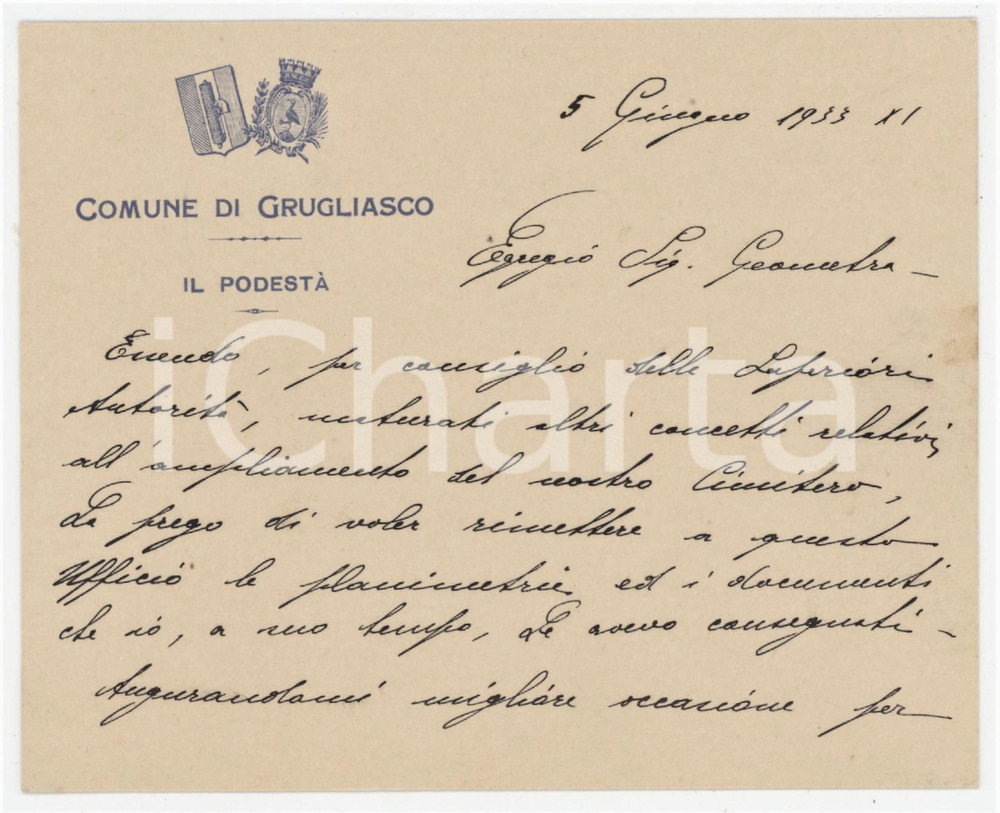 5 Giugno 1933 XI
COMUNE DI GRUGLIASCO
IL PODESTÀ
Egregio Sig. Geometra –
Essendo, per consiglio delle Superiori
Autorità, maturati altri concetti relativi
all'ampliamento del nostro Cimitero,
La prego di voler rimettere a questo
Ufficio le planimetrie ed i documenti
che io, a suo tempo, Le avevo consegnati –
Augurandomi migliore occasione per
iCharta